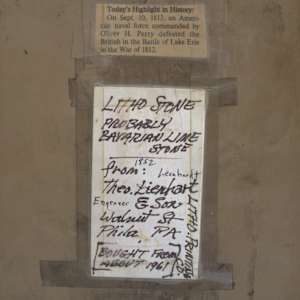 Today's Highlight in History:
On Sept. 10, 1813, an Ameri-
can naval force commanded by
Oliver H. Perry defeated the
British in the Battle of Lake Erie
in the War of 1812.
LITHO STONE
PROBABLY
BAVARIAN LIME
STONE
1852
from: Lienhardt
Theo. Lienhart
Engraver & Son
Walnut St
Phila. PA
BOUGHT FROM
ABOUT 1961
LITHO. PRINTING